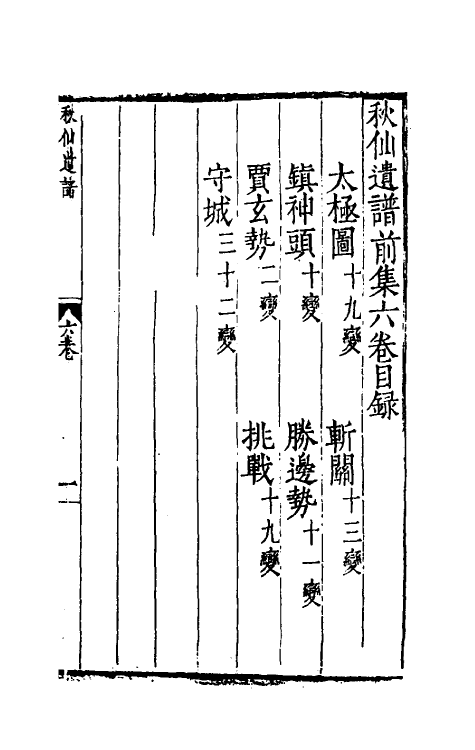 秋仙遺譜前集六卷目録
太極圖十九變 斬關十三變
鎮神頭十變 勝邊勢十一變
賈玄勢二變 挑戰十九變
守城三十二變
秋仙遺譜
六卷
一